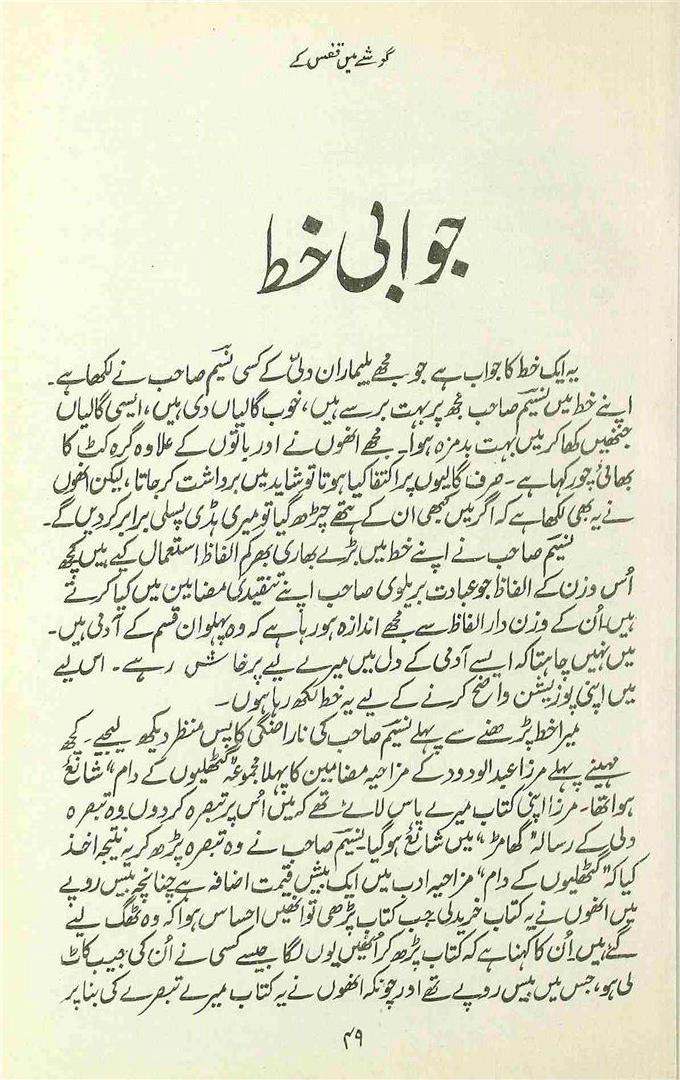 گوشے میں قفس کے
جوابی خط
یہ ایک خط کا جواب ہے جو مجھے بلیماران دلی کے کسی نسیم صاحب نے لکھا ہے۔
اپنے خط میں نسیم صاحب مجھ پر بہت برسے ہیں، خوب گالیاں دی ہیں، ایسی گالیاں
جنھیں کھا کر میں بہت بدمزہ ہوا۔ مجھے انھوں نے اور باتوں کے علاوہ گرہ کٹ کا
بھائی چور کہا ہے۔ صرف گالیوں پر اکتفا کیا ہوتا تو شاید میں برداشت کر جاتا، لیکن انھوں
نے یہ بھی لکھا ہے کہ اگر میں کبھی ان کے ہتھے چڑھ گیا تو میری ہڈی پسلی برابر کر دیں گے۔
نسیم صاحب نے اپنے خط میں بڑے بھاری بھر کم الفاظ استعمال کیے ہیں کچھ
اُس وزن کے الفاظ جو عبادت بریلوی صاحب اپنے تنقیدی مضامین میں کیا کرتے
ہیں۔ اُن کے وزن دار الفاظ سے مجھے اندازہ ہو رہا ہے کہ وہ پہلوان قسم کے آدمی ہیں۔
میں نہیں چاہتا کہ ایسے آدمی کے دل میں میرے لیے پرخاش رہے۔ اس لیے
میں اپنی پوزیشن واضح کرنے کے لیے یہ خط لکھ رہا ہوں۔
میرا خط پڑھنے سے پہلے نسیم صاحب کی ناراضگی کا پس منظر دیکھ لیجیے۔ کچھ
مہینے پہلے مرزا عبد الودود کے مزاحیہ مضامین کا پہلا مجموعہ "گٹھلیوں کے دام" شائع
ہوا تھا۔ مرزا اپنی کتاب میرے پاس لائے تھے کہ میں اُس پر تبصرہ کر دوں وہ تبصرہ
دلی کے رسالہ "گھامڑ" میں شائع ہو گیا۔ نسیم صاحب نے وہ تبصرہ پڑھ کر یہ نتیجہ اخذ
کیا کہ "گٹھلیوں کے دام" مزاحیہ ادب میں ایک بیش قیمت اضافہ ہے چنانچہ بیس روپے
میں انھوں نے یہ کتاب خرید لی۔ جب کتاب پڑھی تو انھیں احساس ہوا کہ وہ ٹھگ لیے
گئے ہیں۔ اُن کا کہنا ہے کہ کتاب پڑھ کر اُنھیں یوں لگا جیسے کسی نے اُن کی جیب کاٹ
لی ہو، جس میں بیس روپے تھے اور چونکہ انھوں نے یہ کتاب میرے تبصرے کی بنا پر
۴۹